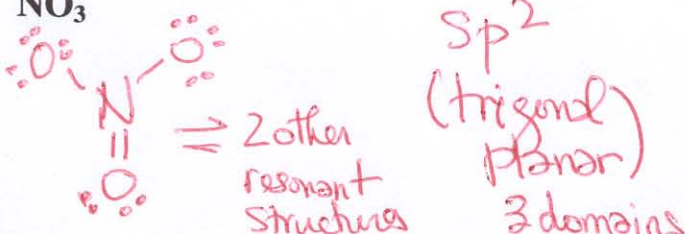 NO₃
O O
N
||
O
⇌ 2 other
resonant
structures
sp²
(trigonal
planar)
3 domains